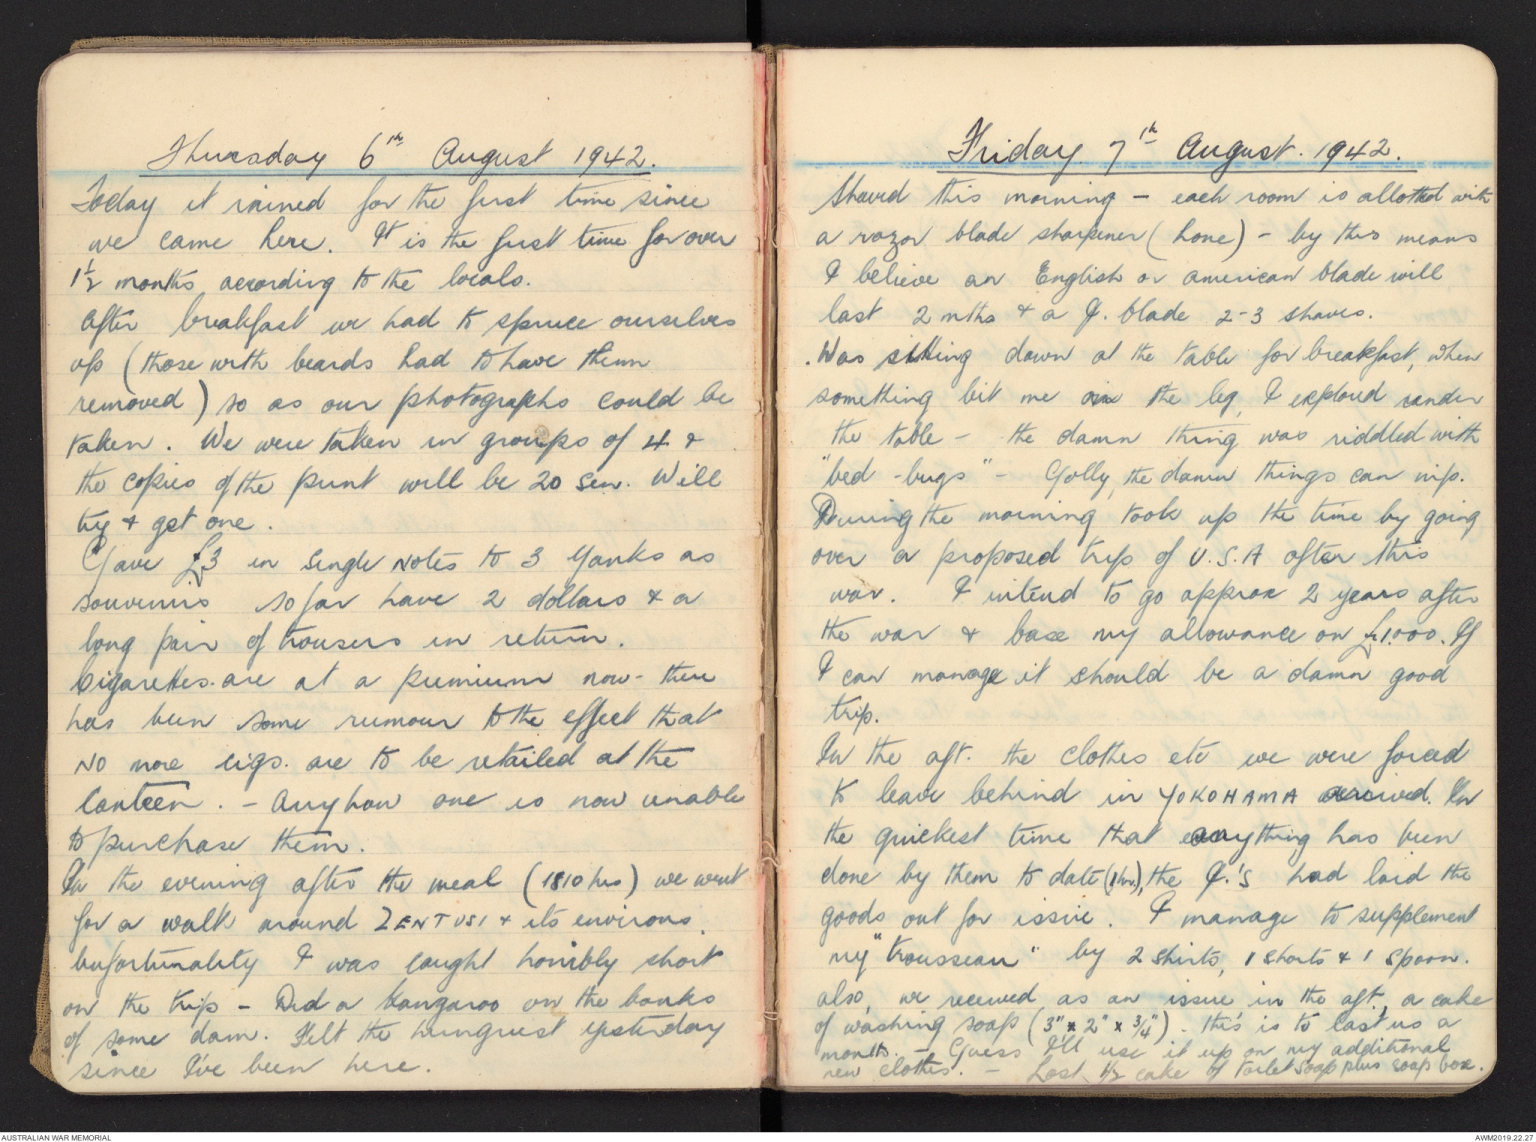 Thursday 6th August 1942.
Today it rained for the first time since
we came here. It is the first time for over
1½ months according to the locals.
After breakfast we had to spruce ourselves
up (those with beards had to have them
removed) so as our photographs could be
taken. We were taken in groups of 4 &
the copies of the print will be 20 sen. Will
try & get one.
Gave £3 in single notes to 3 Yanks as
souvenirs so far have 2 dollars & a
long pair of trousers in return.
Cigarettes are at a premium now - there
has been some rumour to the effect that
NO more cigs. are to be retailed at the
Canteen. - Anyhow one is now unable
to purchase them.
In the evening after the meal (1810 hrs) we went
for a walk around ZENTUSI & its environs.
Unfortunality I was caught horribly short
on the trip - Did a kangaroo on the banks
of some dam. Felt the hungriest yesterday
since I've been here.
Friday 7th August. 1942.
Shaved this morning - each room is allotted with
a razor blade sharpener (hone) - by this means
I believe an English or american blade will
last 2 mths & a J. blade 2-3 shaves.
Was sitting down at the table for breakfast, when
something bit me on the leg, I explored under
the table - the damn thing was riddled with
"bed-bugs" - Golly, the damn things can nip.
During the morning took up the time by going
over a proposed trip of U.S.A after this
war. I intend to go approx 2 years after
the war & base my allowance on £1000. If
I can manage it should be a damn good
trip.
In the aft. the clothes etc we were forced
to leave behind in YOKOHAMA arrived. In
the quickest time that anything has been
done by them to date (1hr), the J.'s had laid the
goods out for issue. I manage to supplement
my "trousseau" by 2 shirts, 1 shorts & 1 spoon.
also, we received as an issue in the aft, a cake
of washing soap (3" x 2" x ¾"). this is to last us a
month. - Guess I'll use it up on my additional
new clothes. - Lost ½ cake of toilet soap plus soap box.
AUSTRALIAN WAR MEMORIAL
AWM2019.22.27